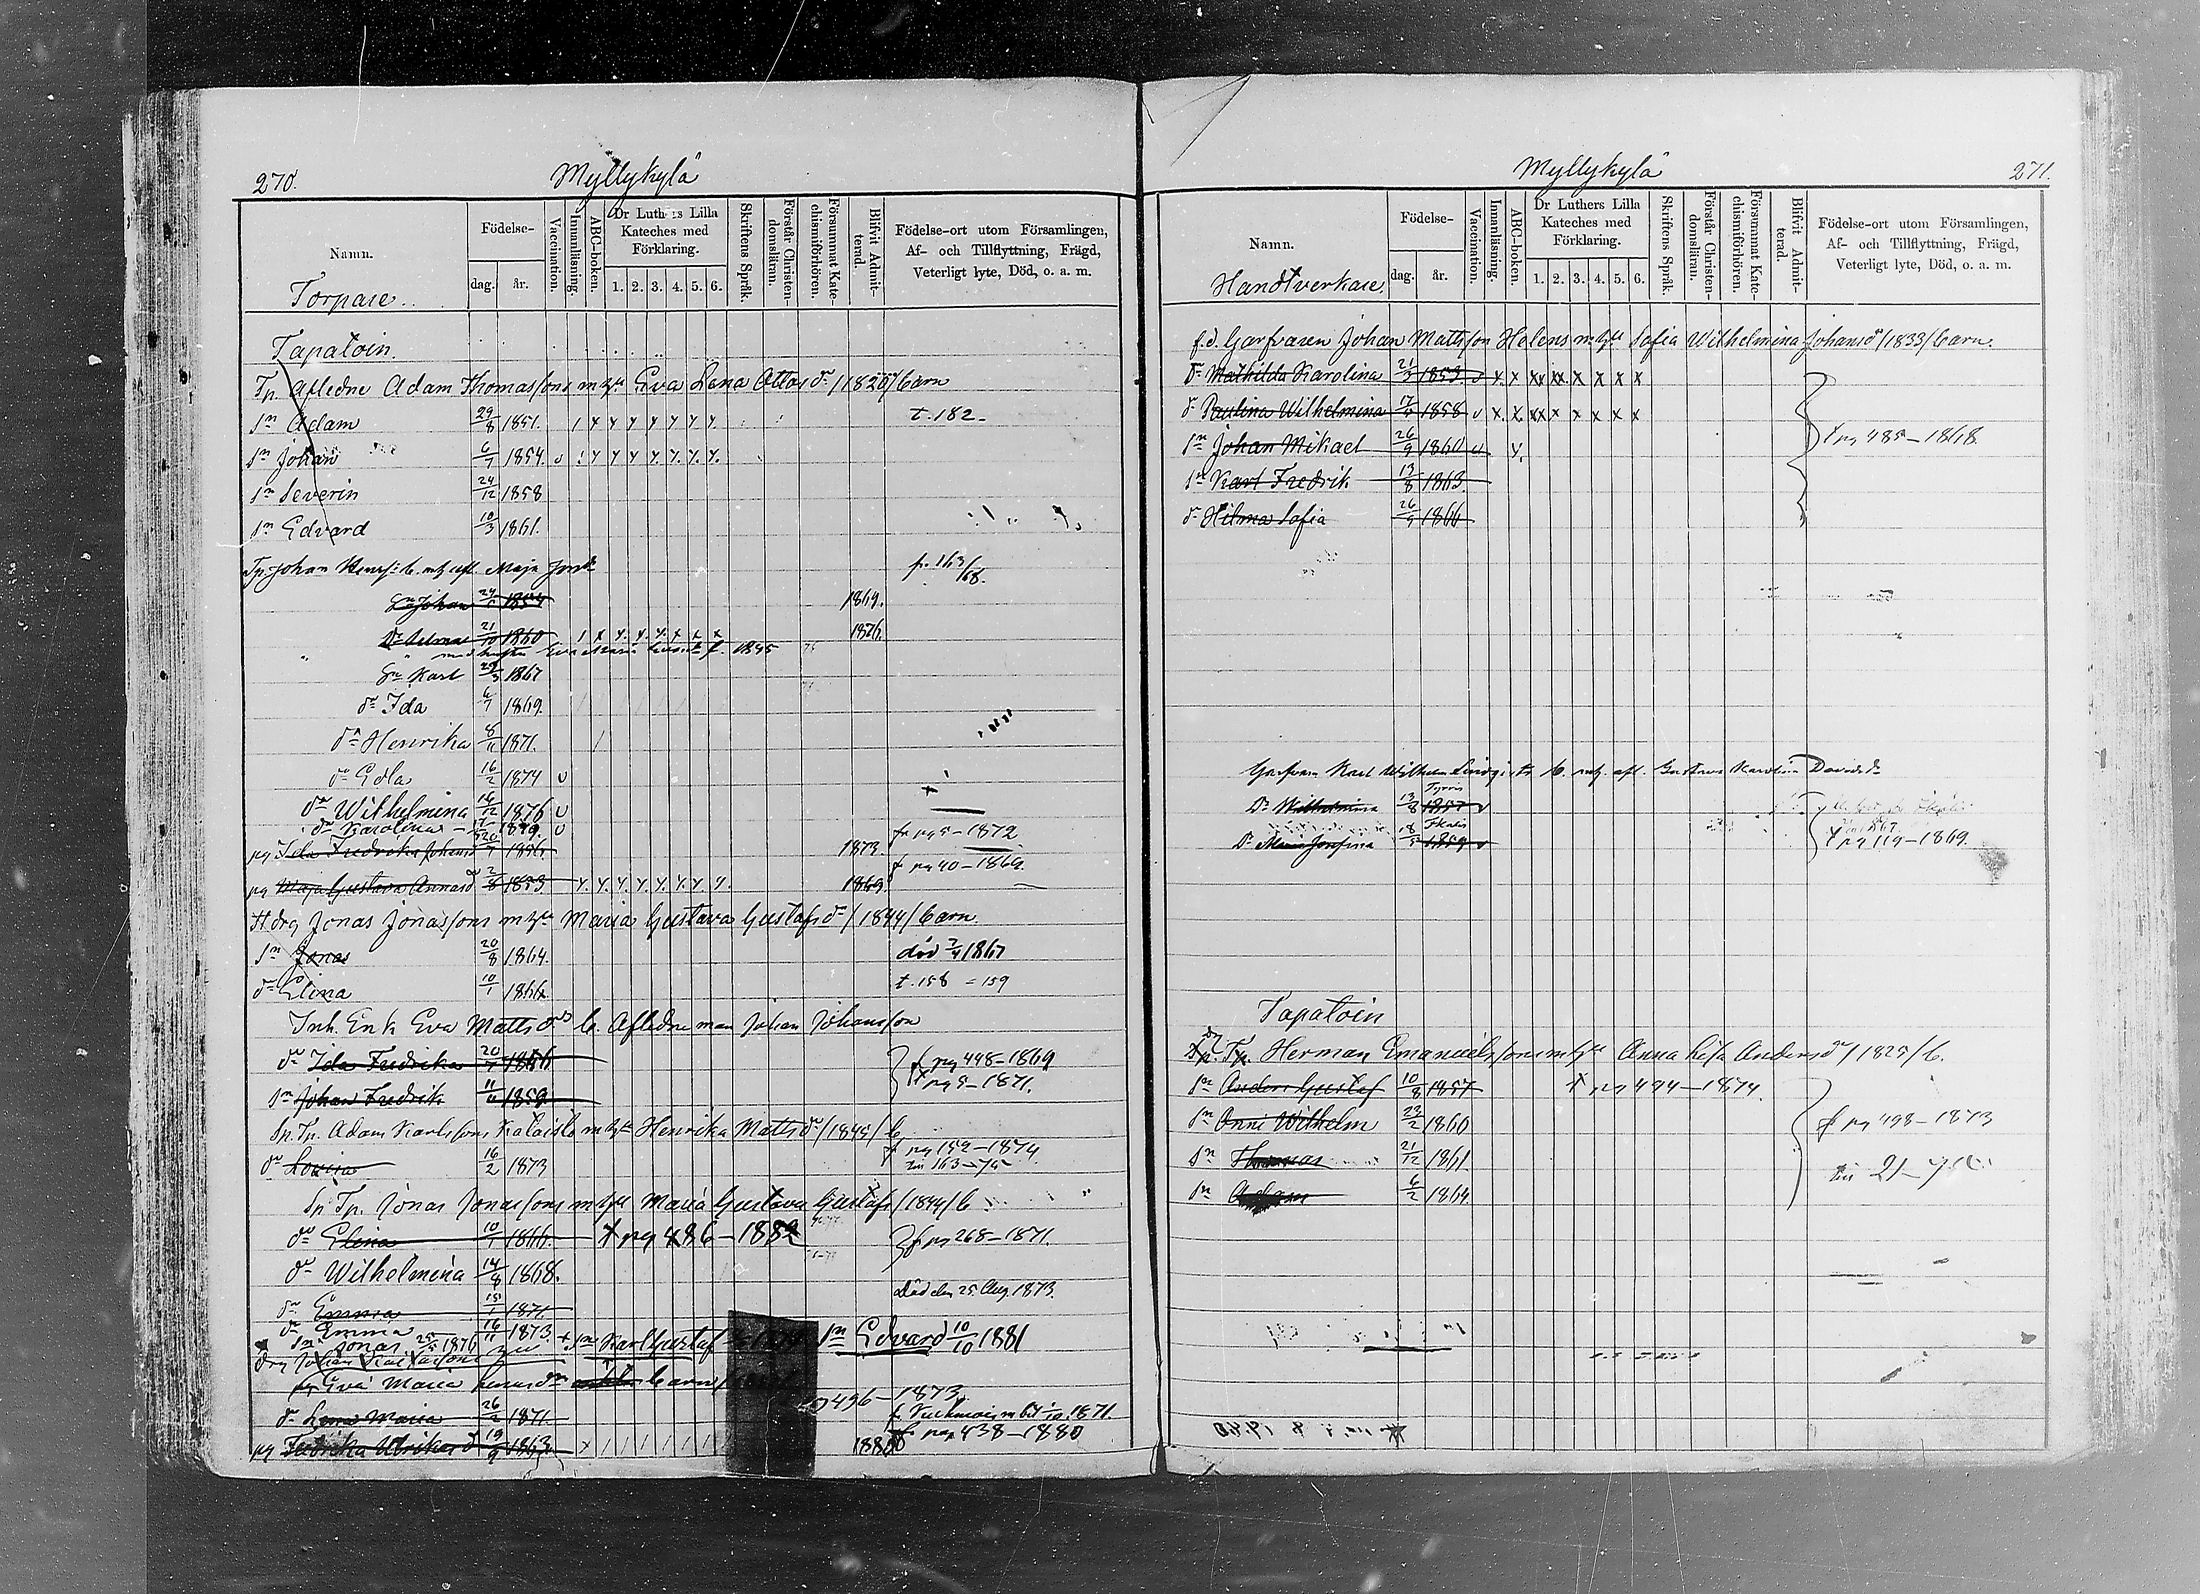 270.
Myllykylä
Namn.
Födelse-
dag.
år.
Vaccination.
Innanläsning.
ABC-boken.
Dr Luthers Lilla Kateches med Förklaring.
1. 2. 3. 4. 5. 6.
Skriftens Språk.
Förstår Christendomsläran.
Försummat Katechismiförhören.
Blifvit Admitterad.
Födelse-ort utom Församlingen,
Af- och Tillflyttning, Frägd,
Veterligt lyte, Död, o. a. m.
Torpare.
Tapatoin.
Tp. Afledne Adam Thomassons m hu Eva Lena Attos dr /1820/ barn
sn Adam 29/8 1851. t. 182
sn Johan 6/7 1854. v
sn Severin 24/12 1858
sn Edvard 10/3 1861.
Tp Johan b. m afl. Maja f. 163/68.
Sn Johan 1854 1869.
Dr Selma 21/10 1860 1876.
Eva Maria f. 1845
Sn Karl 1867
dr Ida 6/7 1869.
dr Henrika 8/11 1871.
dr Edla 16/2 1874 v
dr Wilhelmina 16/12 1876 v
dr Karolina 1879. v
pg Ida Fredrika Johansd 1856 1873 fr pg 5 - 1872
pg Maja Gustava Annasd 2/8 1853 1869 fr pg 40 - 1869.
Hdrg Jonas Jonassons m hu Maria Gustava Gustafs dr /1844/ barn
sn Jonas 20/8 1864. död 2/4 1867
dr Elina 10/1 1866. t. 158 = 159
Inh. Enk Eva Matts dr b. Afledne man Johan Johansson
dr Ida Fredrika 1856 f pg 498-1869
sn Johan Fredrik 11/11 1859 t pg 5-1871.
Sp. Tp. Adam Karlssons m hu Henrika Matts dr /1845/ b
dr Lovisa 16/2 1873 f pg 152-1874 till 163-75
Sp Tp. Jonas Jonassons m hu Maria Gustava Gustafs /1844/ b
dr Elina 10/1 1866. t pg 486-1882 f pg 268-1871.
dr Wilhelmina 14/8 1868.
dr Emma 15/1 1871. Död den 25 Aug 1873.
dr Emma 16/11 1873 + sn Karl Gustaf sn Edvard 10/10 1881
sn Jonas 1876
Drg Johan
Eva Maria barn 496-1873
dr Lena Maria 26/2 1871. 1871.
pg Fredrika Ulrikasd 19/9 1863 1880 fr pag 438-1880
Myllykylä
271.
Namn.
Födelse-
dag.
år.
Vaccination.
Innanläsning.
ABC-boken.
Dr Luthers Lilla Kateches med Förklaring.
1. 2. 3. 4. 5. 6.
Skriftens Språk.
Förstår Christendomsläran.
Försummat Katechismiförhören.
Blifvit Admitterad.
Födelse-ort utom Församlingen,
Af- och Tillflyttning, Frägd,
Veterligt lyte, Död, o. a. m.
Handtverkare.
f.d. Garfvaren Johan Mattsson Helens m hu Sofia Wilhelmina Johansdr /1833/ barn.
dr Mathilda Karolina 21/3 1853 v
dr Paulina Wilhelmina 1858 v
sn Johan Mikael 26/9 1860 v t pg 485-1868
sn Karl Fredrik 13/8 1863.
dr Hilma Sofia 26/9 1866
Garfvaren Karl Wilhelm b. m. afl. Gustava Karolina Davidsdr
Dr Wilhelmina 13/8 1857 v
Dr Maria Josefina 1859 v t pg 119-1869.
Tapatoin
Tp. Herman Emanuelssons m hu Anna Lisa Anders dr /1825/ b.
sn Anders Gustaf 10/8 1857 t pg 494-1874.
sn Onni Wilhelm 23/2 1860 f pg 498-1873
sn Thomas 21/12 1861 till 21-75
sn Adam 6/2 1864